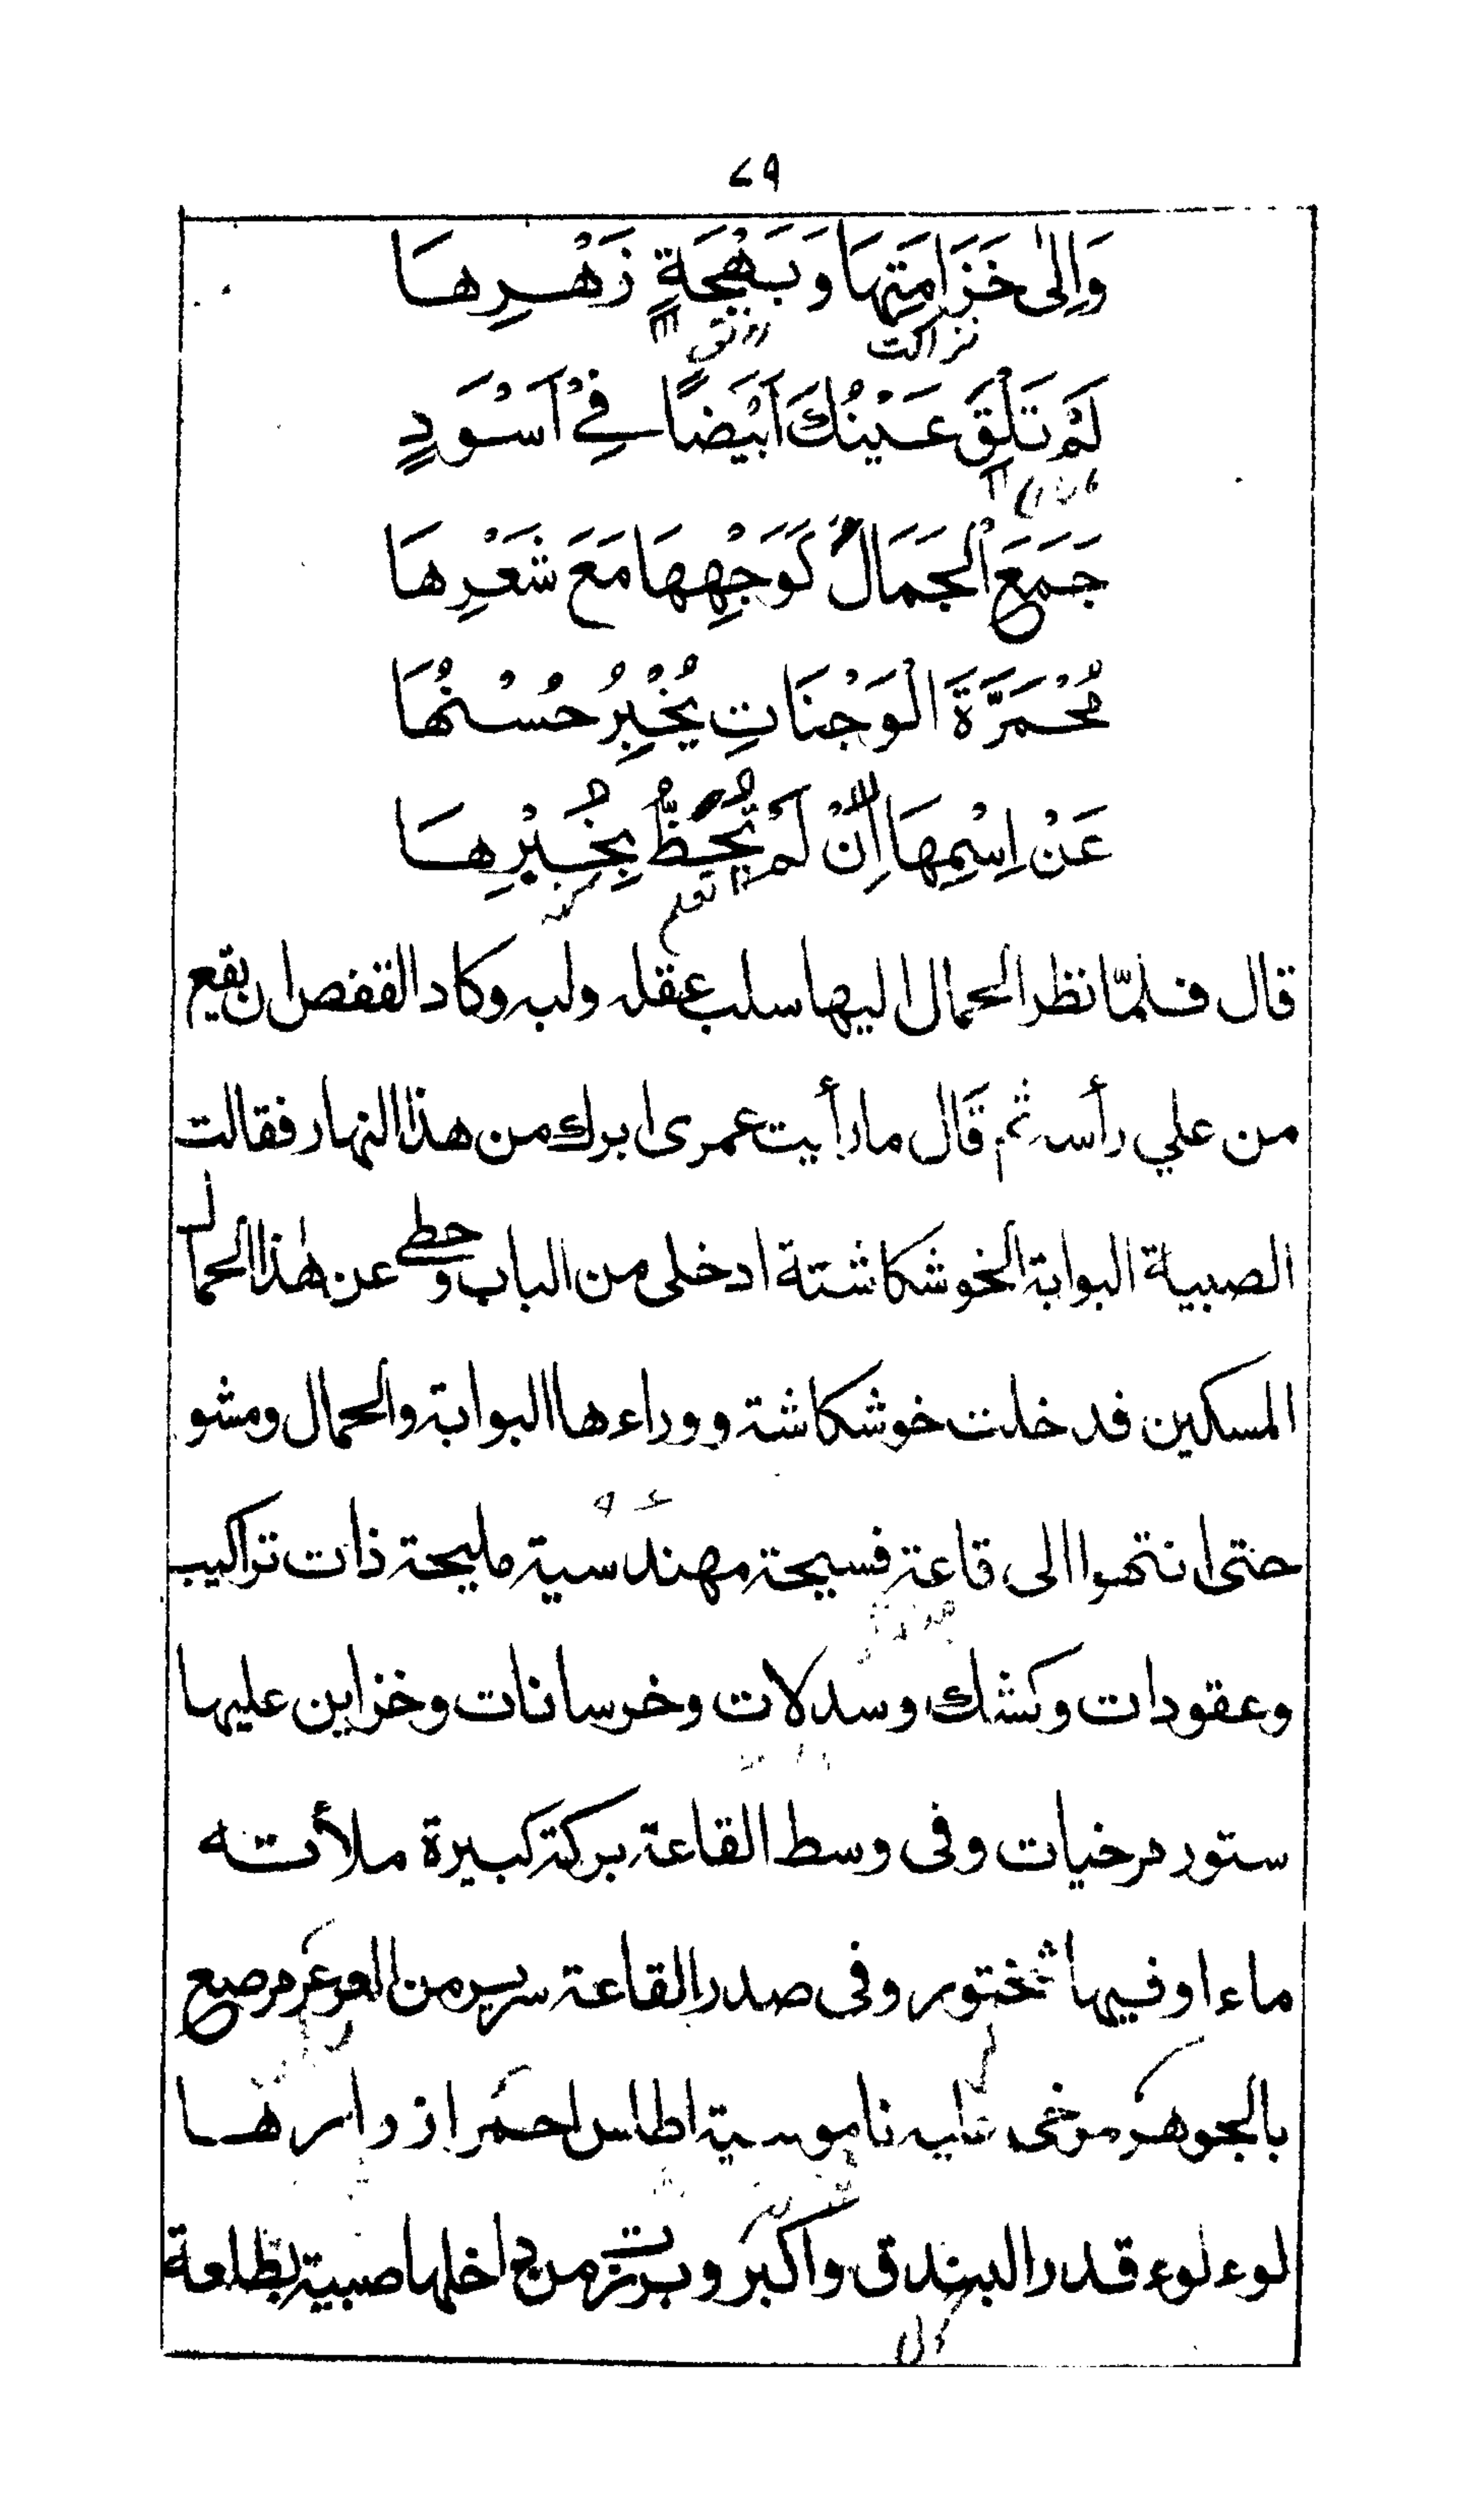 ٧٩
وَاِلىٰ خَزَامَتِهَا وَبَهْجَةٍ زَهْرِهَا
نزاکت
لَمْ تَلَقَ عَيْنُكَ اَبْيَضًا فِيْ اَسْوَدٍ
جَمَعَ الْجَمَالُ كَوَجْهِهَا مَعَ شَعْرِهَا
مُحْمَرَّةَ الْوَجْنَاتِ يُخْبِرُ حُسْنُهَا
عَنْ اِسْمِهَا اِنْ لَمْ تُحِظُّ بِخُبْرِهَا
قال فلمّا نظر الحمال اليها سلب عقله ولبه وكاد القفص ان يقع
من علي رأسه ثم قَال ما رأيت عمرى ابرك من هذا النهار فقالت
الصبية البوابة الخوشكاشتة ادخلى من الباب وحطي عن هٰذا الحمال
المسكين فدخلت خوشكاشة ووراءها البوابة والحمال ومشو
حتى انتهوا الى قاعة فسيحة مهندسية مليحة ذات تراكيب
وعقودات وكشك وسدلات وخرسانات وخزاين عليها
ستور مرخيات وفى وسط القاعة بركة كبيرة ملأته
ماء اوفيها شختور وفى صدر القاعة سرير من العرعر مرصع
بالجوهر مرخى عليه ناموسية اطلس احمر ازرارها
لوءلوء قدر البندق واكبر وبرزت من داخلها صبية بطلعة